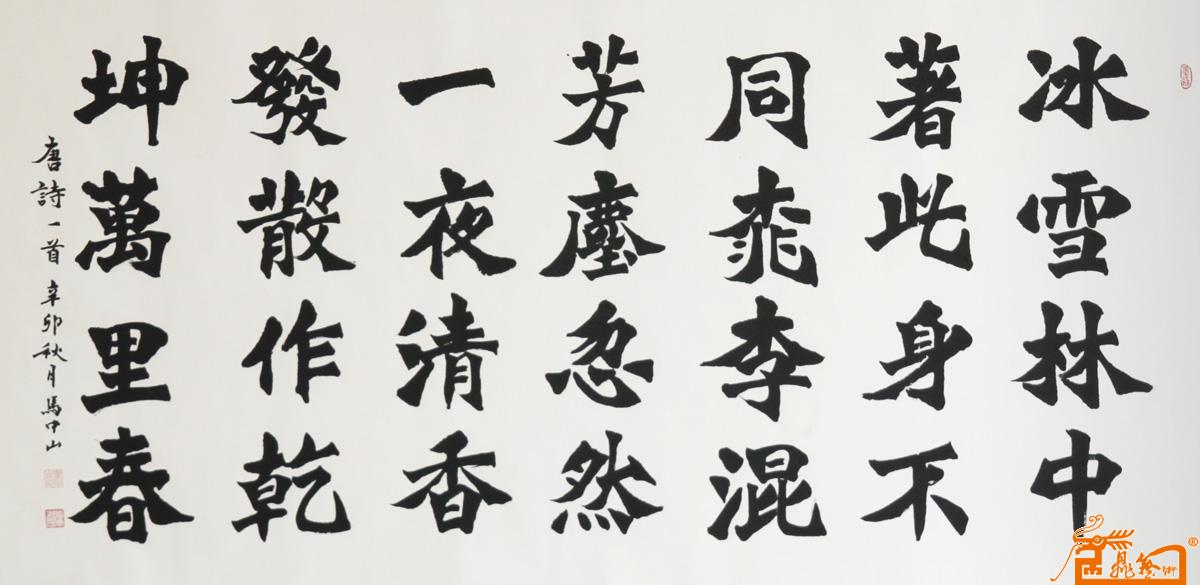 冰雪林中
著此身不
同桃李混
芳塵忽然
一夜清香
發散作乾
坤萬里春
唐詩一首 辛卯秋月 馬中山